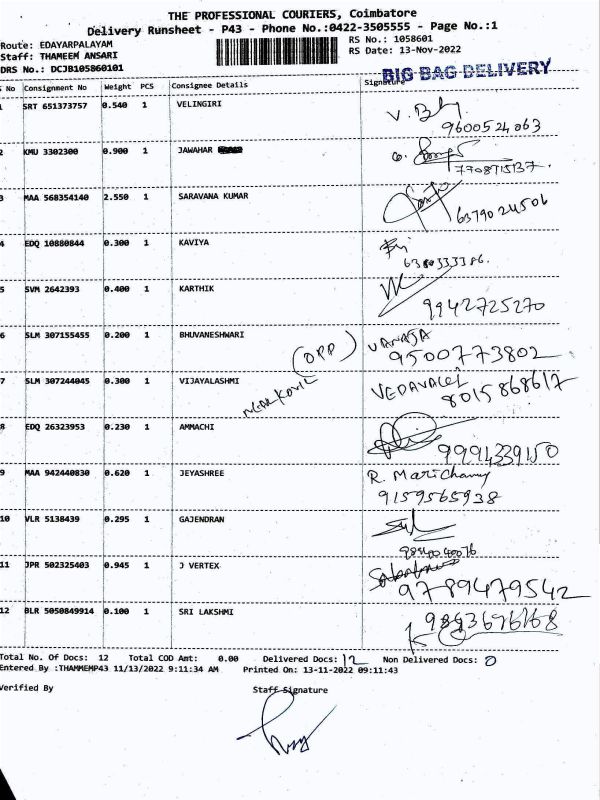 THE PROFESSIONAL COURIERS, Coimbatore
Delivery Runsheet - P43 - Phone No.:0422-3505555 - Page No.:1
Route: EDAYARPALAYAM
RS No.: 1058601
Staff: THAMEEM ANSARI
RS Date: 13-Nov-2022
DRS No.: DCJB105860101
BIG BAG DELIVERY
No Consignment No Weight PCS Consignee Details Signature
1 SRT 651373757 0.540 1 VELINGIRI
9600524063
2 KMU 3302300 0.900 1 JAWAHAR
7708715137.
3 MAA 568354140 2.550 1 SARAVANA KUMAR
6379024506
4 EDQ 10880844 0.300 1 KAVIYA
5 SVM 2642393 0.400 1 KARTHIK
9942725270
6 SLM 307155455 0.200 1 BHUVANESHWARI
(OPP) VANAJA
9500773802
7 SLM 307244045 0.300 1 VIJAYALASHMI
NEAR KOVIL
8015868617
8 EDQ 26323953 0.230 1 AMMACHI
9994339150
9 MAA 942440830 0.620 1 JEYASHREE
R. Marichamy
9159565938
10 VLR 5138439 0.295 1 GAJENDRAN
11 JPR 502325403 0.945 1 J VERTEX
9789479542
12 BLR 5050849914 0.100 1 SRI LAKSHMI
Total No. Of Docs: 12 Total COD Amt: 0.00 Delivered Docs: 12 Non Delivered Docs: 0
Entered By :THAMMEMP43 11/13/2022 9:11:34 AM Printed On: 13-11-2022 09:11:43
Verified By Staff Signature